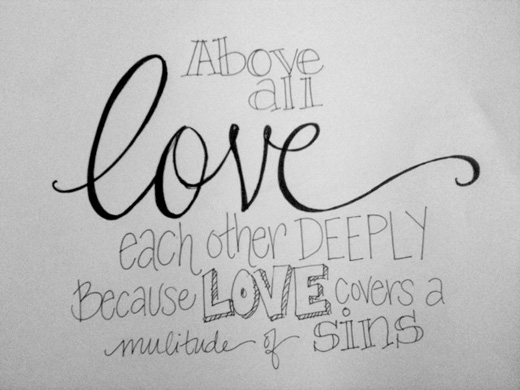 Above
all
love
each other DEEPLY
Because LOVE covers a
mulitude of sins